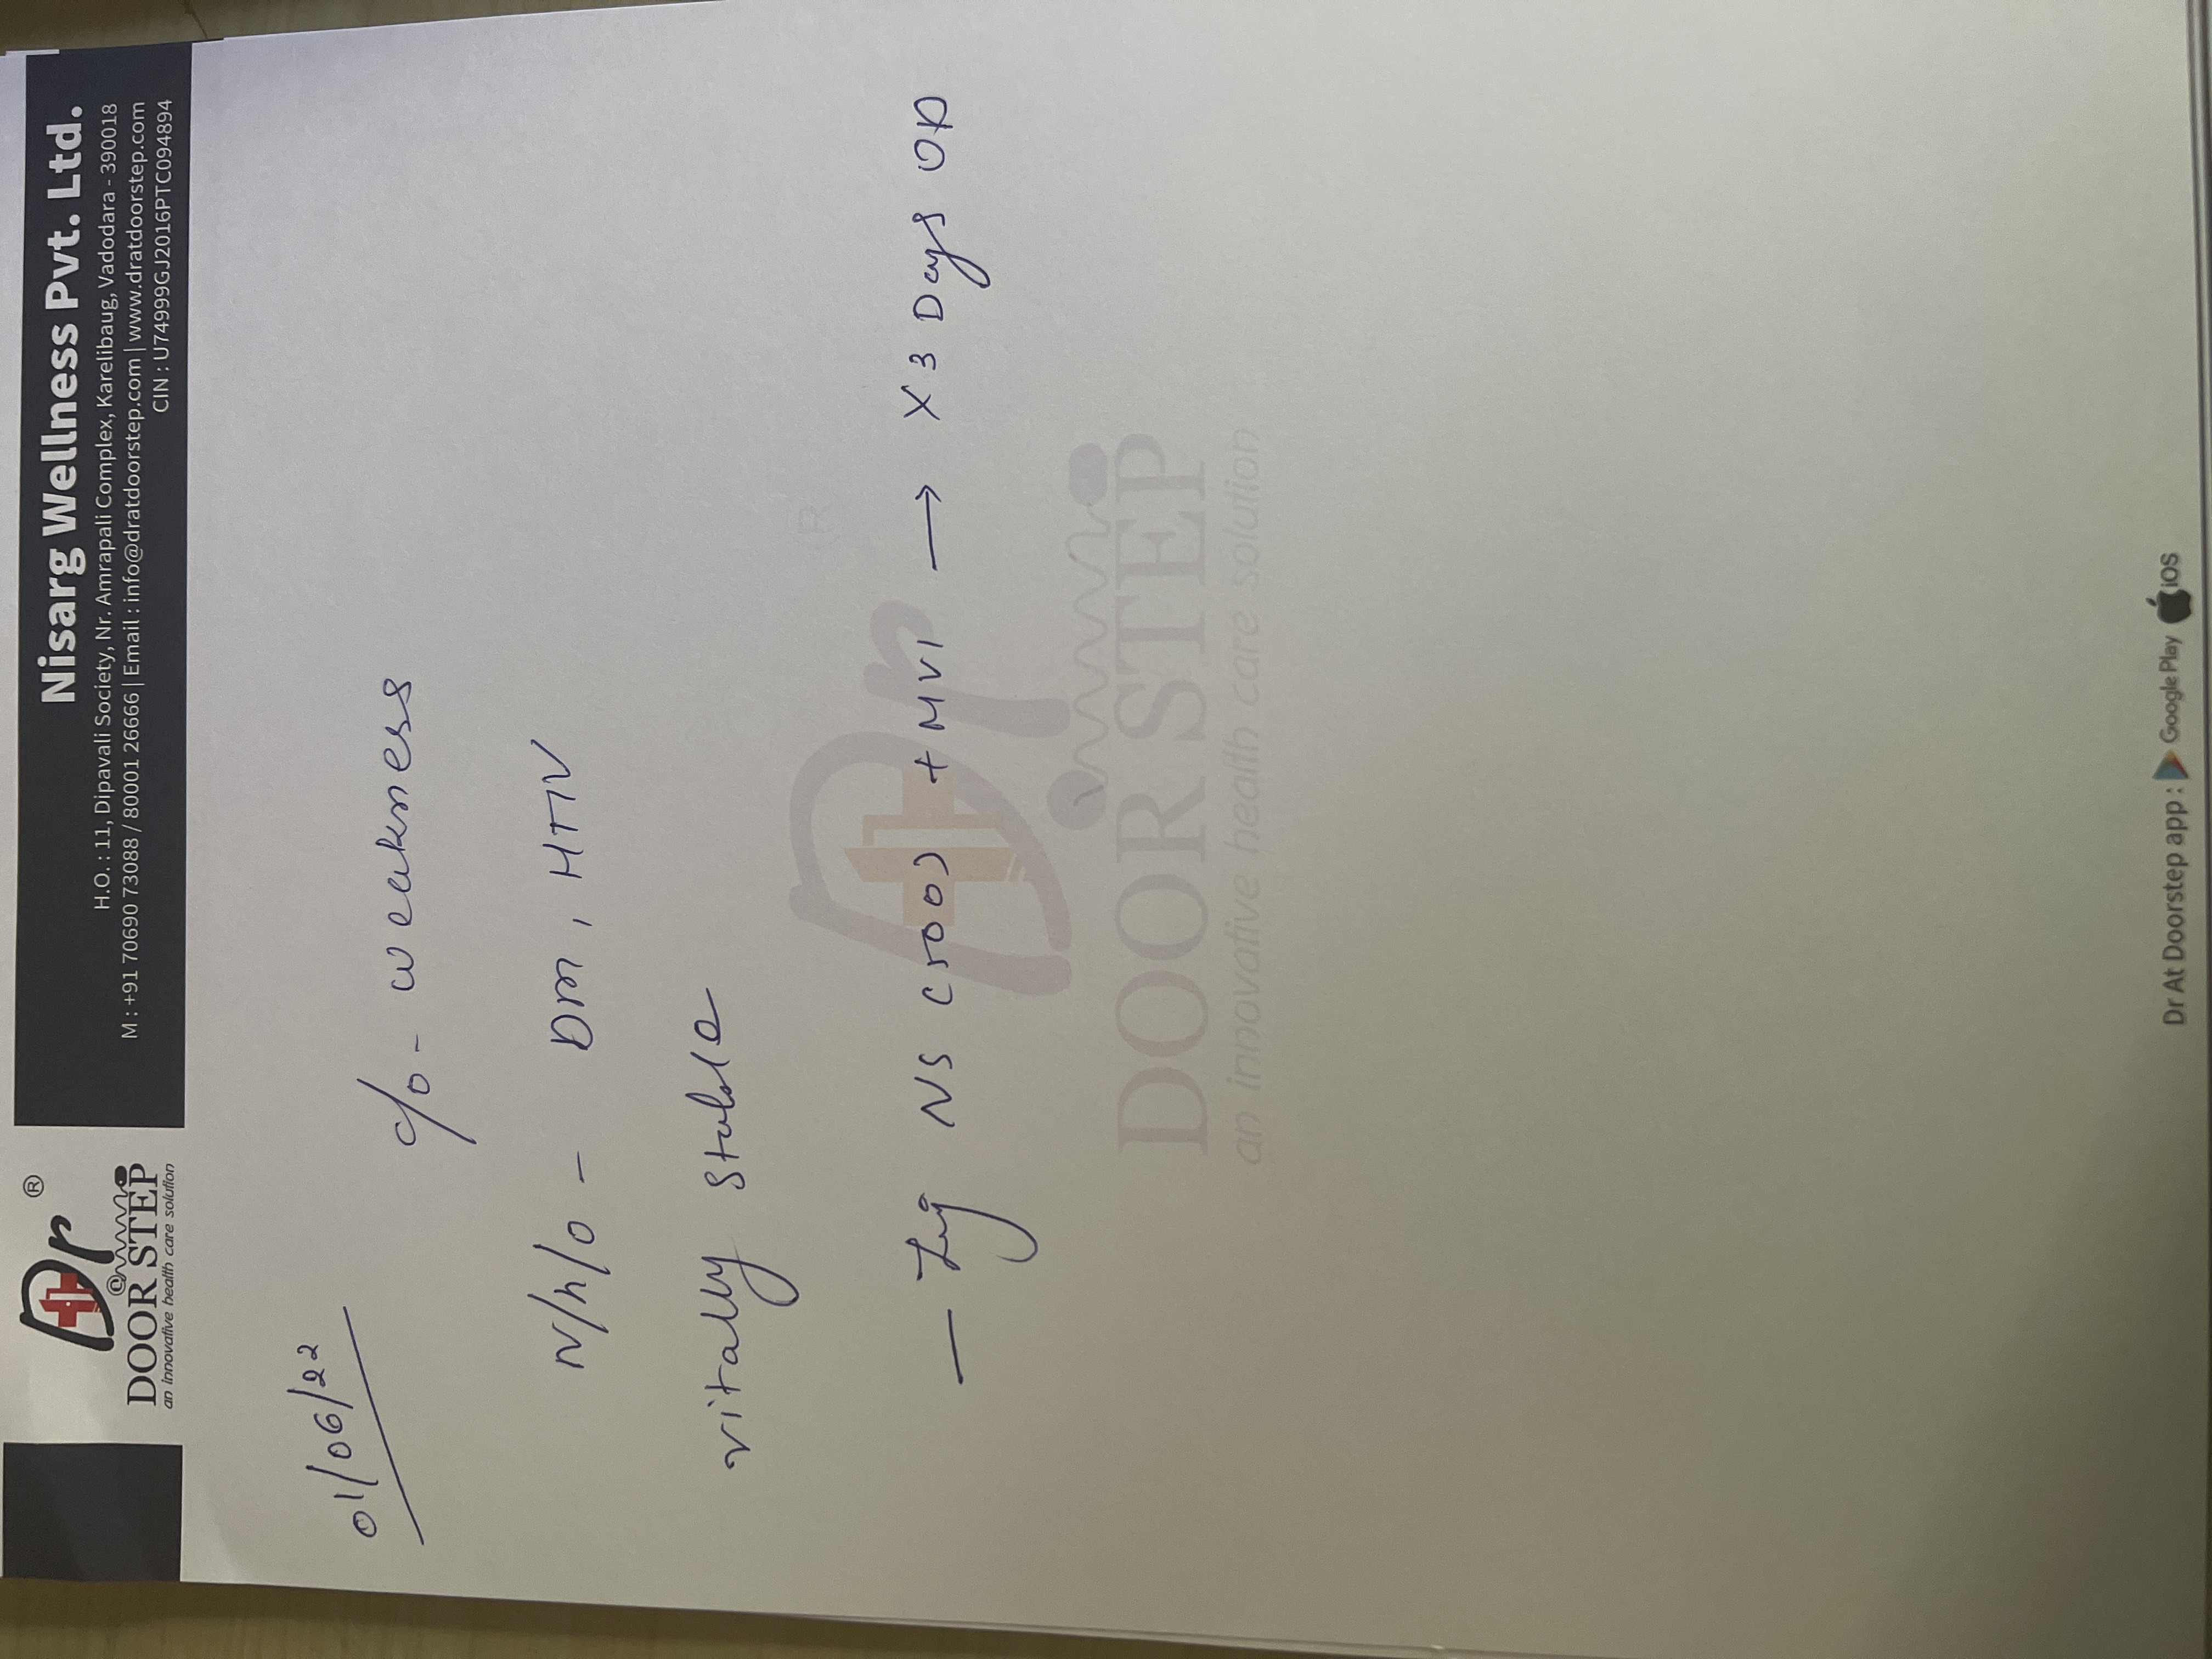 Dr ®
@
DOOR STEP
an innovative health care solution
Nisarg Wellness Pvt. Ltd.
H.O. : 11, Dipavali Society, Nr. Amrapali Complex, Karelibaug, Vadodara - 390018
M : +91 70690 73088 / 80001 26666 | Email : info@dratdoorstep.com | www.dratdoorstep.com
CIN : U74999GJ2016PTC094894
01/06/22
c/o - weakness
N/h/o - DM, HTN
vitally stable
- Inj NS (500) + MVI → X 3 Days OD
Dr ®
DOOR STEP
an innovative health care solution
Dr At Doorstep app : Google Play iOS